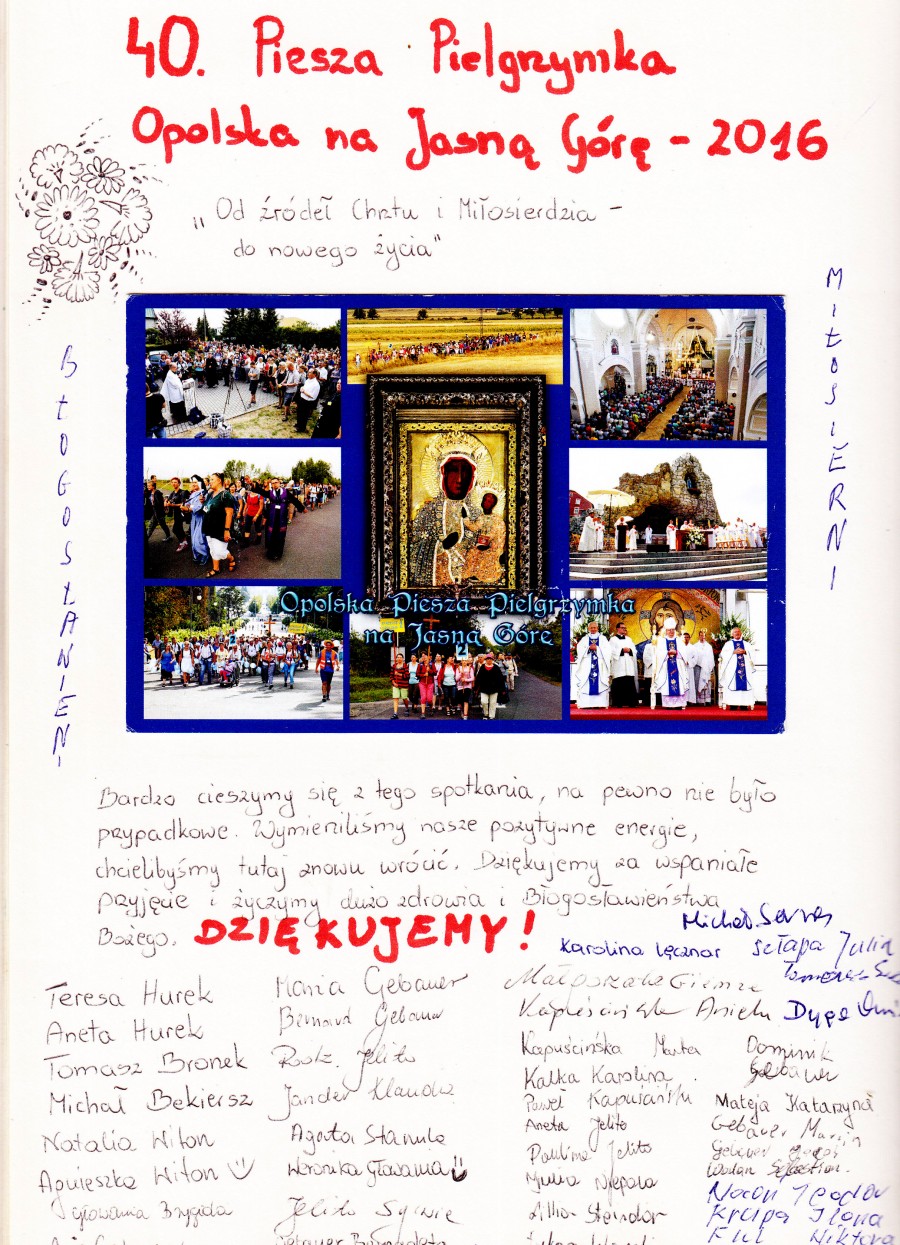 40. Piesza Pielgrzymka
Opolska na Jasną Górę - 2016
„Od źródeł Chrztu i Miłosierdzia -
do nowego życia"
BŁOGOSŁAWIENI
MIŁOSIERNI
Opolska Piesza Pielgrzymka
na Jasną Górę
Bardzo cieszymy się z tego spotkania, na pewno nie było
przypadkowe. Wymieniliśmy nasze pozytywne energie,
chcielibyśmy tutaj znowu wrócić. Dziękujemy za wspaniałe
przyjęcie i życzymy dużo zdrowia i Błogosławieństwa
Bożego. DZIĘKUJEMY!
Michał
Karolina Łęcznar
Szłapa Julia
Teresa Hurek
Aneta Hurek
Tomasz Bronek
Michał Bekiersz
Natalia Witon
Agnieszka Witon
Głowania Brygida
Maria Gebauer
Bernard Gebauer
Jelito
Jander Klaudia
Agata Stanula
Weronika Gławania
Jelito Sylwia
Małgorzata
Aniela
Kapuścińska Marta
Kalka Karolina
Paweł Kapuściński
Aneta Jelito
Paulina Jelito
Lillia Steindor
Dominik
Gebauer
Mateja Katarzyna
Gebauer Marcin
Gebauer
Wodan Sebastian.
Teodor
Krupa Ilona
Wiktoria